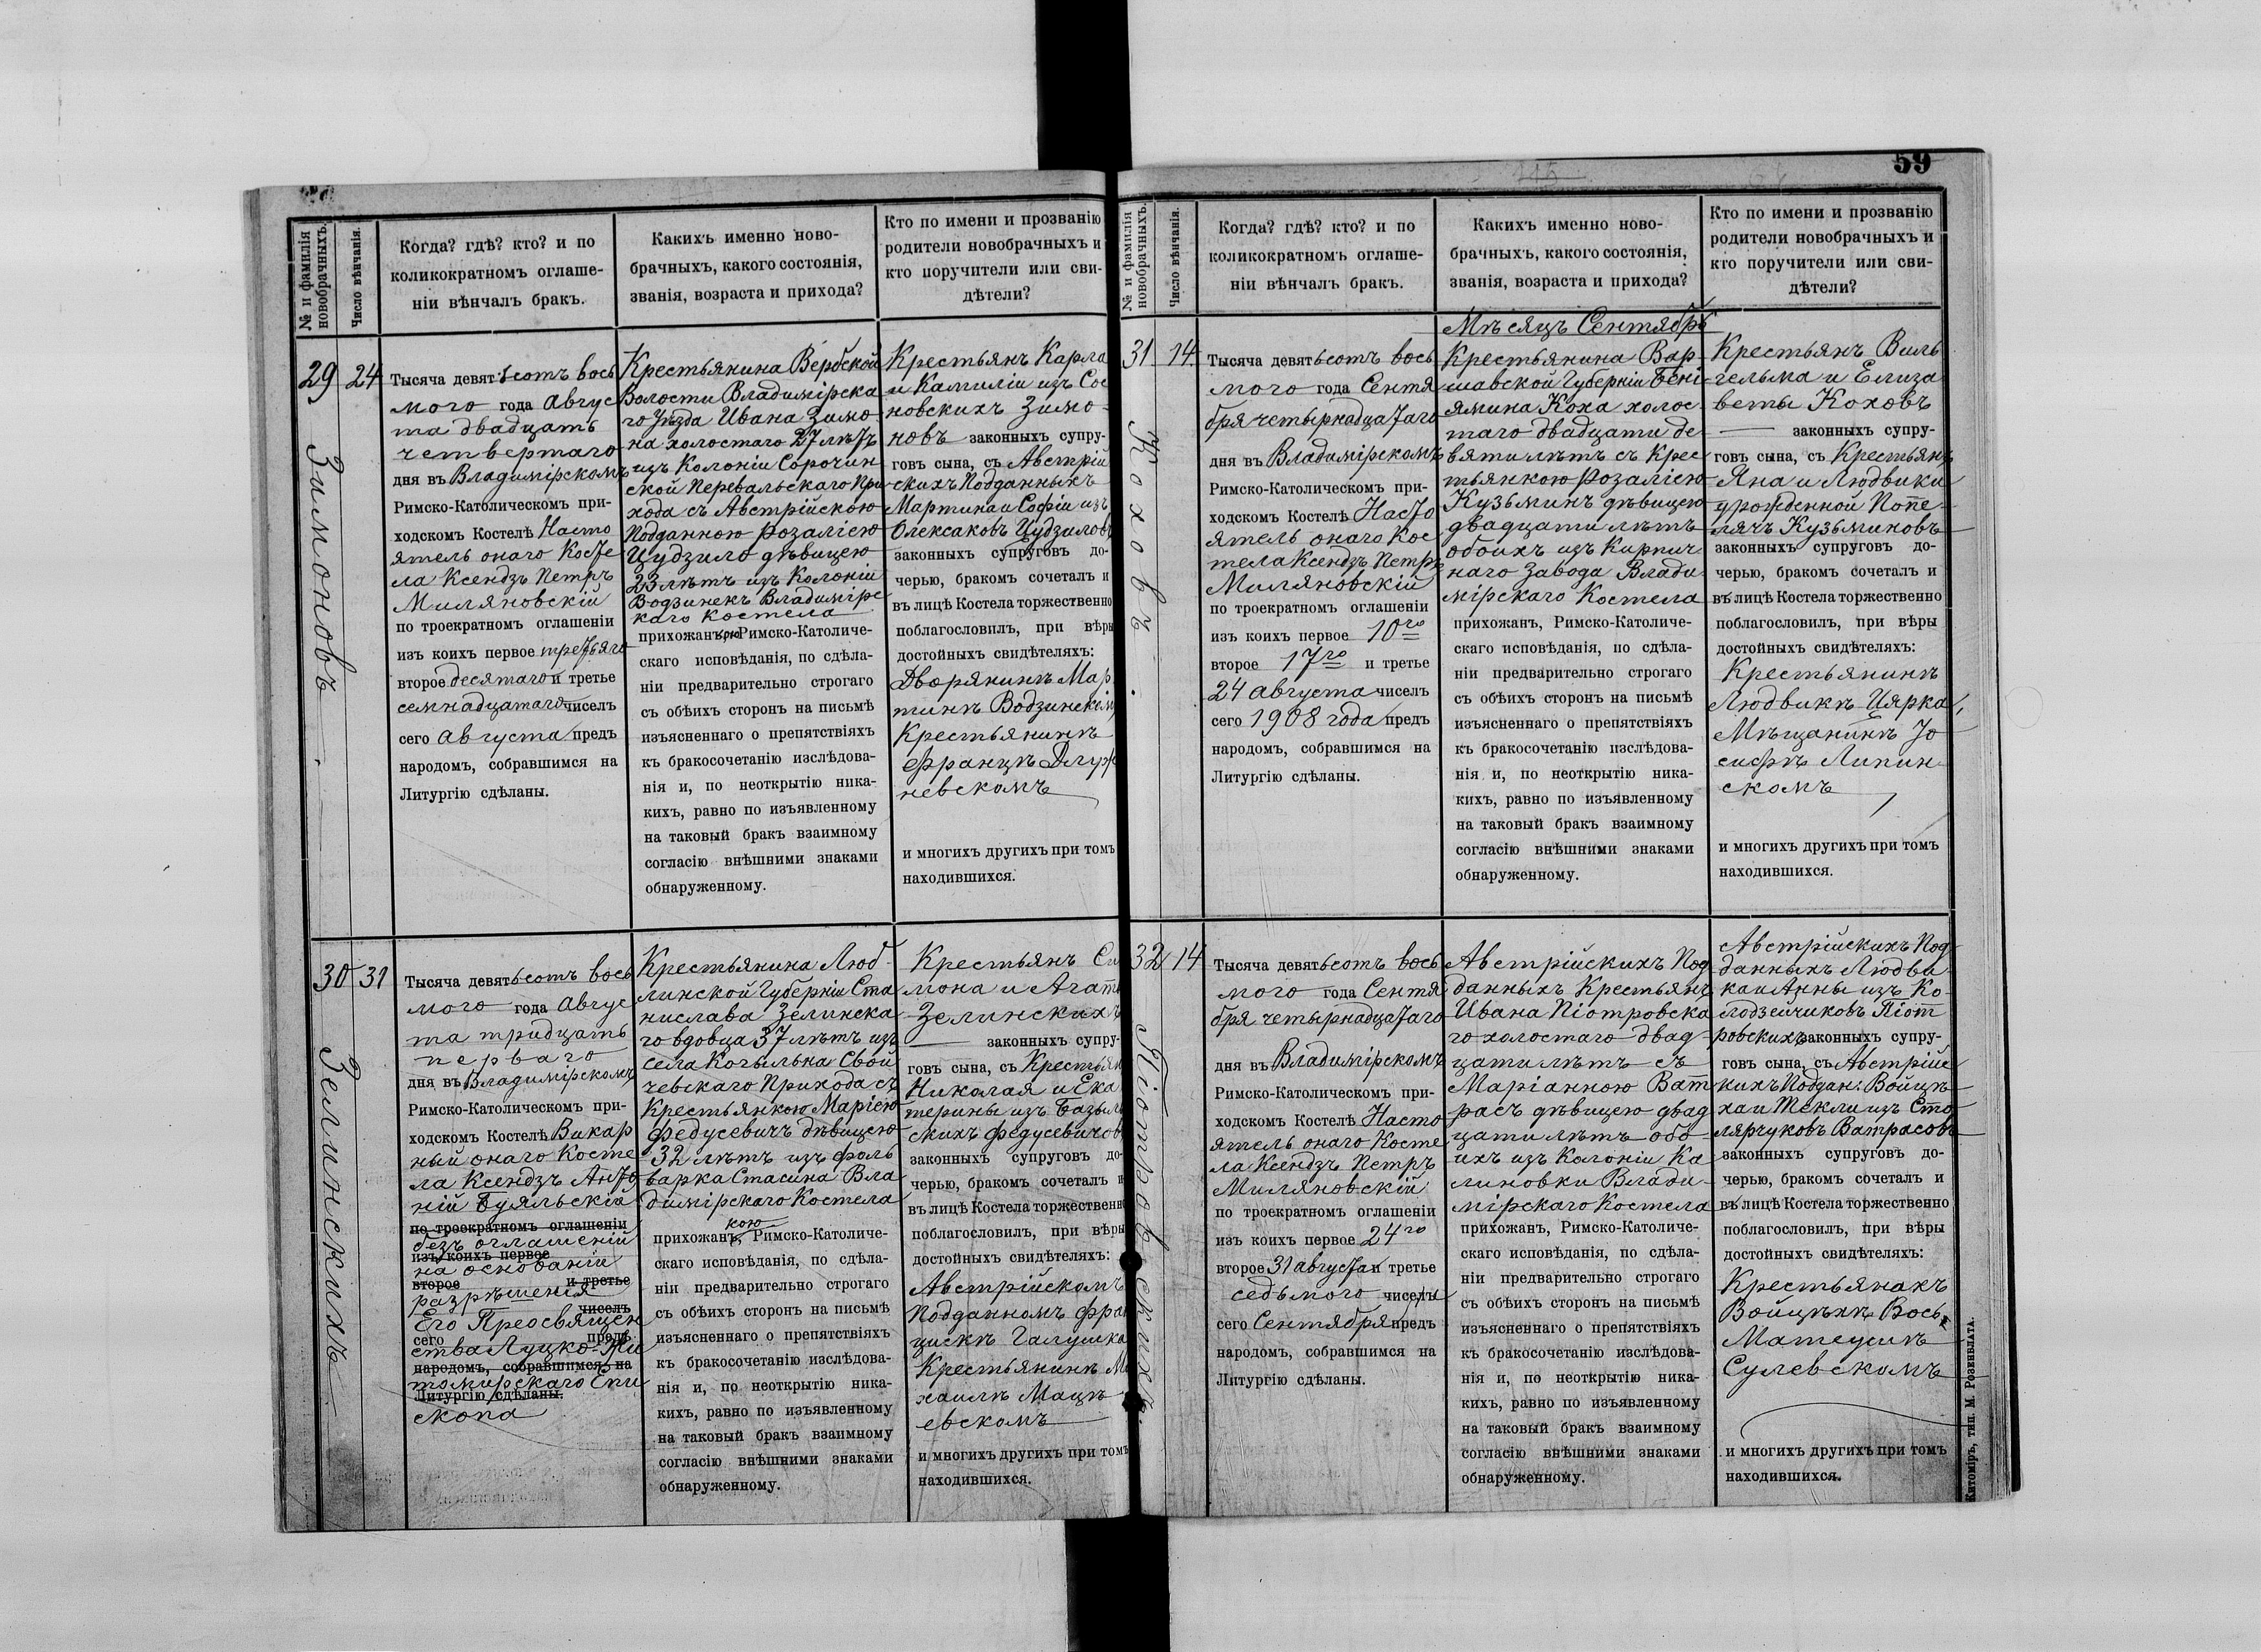 59
№ и фамилія
новобрачныхъ.
Число вѣнчанія.
Когда? гдѣ? кто? и по
коликократномъ оглаше-
ніи вѣнчалъ бракъ.
Какихъ именно ново-
брачныхъ, какого состоянія,
званія, возраста и прихода?
Кто по имени и прозванію
родители новобрачныхъ и
кто поручители или сви-
дѣтели?
29
24
Зимоновъ
Тысяча девятьсотъ вось
мого года Авгус
та двадцать
четвертаго
дня въ Владимірскомъ
Римско-Католическомъ при-
ходскомъ Костелѣ Насто
ятель онаго Косте
ла Ксендзъ Петръ
Миляновскій
по троекратномъ оглашеніи
изъ коихъ первое третьяго
второе десятаго и третье
семнадцатаго чиселъ
сего августа предъ
народомъ, собравшимся на
Литургію сдѣланы.
Крестьянина Вербской
Волости Владимірска
го Уѣзда Ивана Зимо-
на холостаго 27 лѣтъ
изъ Колоніи Сорочин
ской Перевальскаго При
хода съ Австрійскою
Подданною Розаліею
Цудзило дѣвицею
23 лѣтъ изъ Колоніи
Водзинекъ Владимірс
каго Костела
прихожанкою Римско-Католиче-
скаго исповѣданія, по сдѣла-
ніи предварительно строгаго
съ обѣихъ сторонъ на письмѣ
изъясненнаго о препятствіяхъ
къ бракосочетанію изслѣдова-
нія и, по неоткрытію ника-
кихъ, равно по изъявленному
на таковый бракъ взаимному
согласію внѣшними знаками
обнаруженному.
Крестьянъ Карла
и Камиліи изъ Сос
новскихъ Зимо-
новъ законныхъ супру-
говъ сына, съ Австрій
скихъ Подданныхъ
Мартина и Софіи изъ
Олексаковъ Цудзиловъ
законныхъ супруговъ до-
черью, бракомъ сочеталъ и
въ лицѣ Костела торжественно
поблагословилъ, при вѣры
достойныхъ свидѣтеляхъ:
Дворянинѣ Мар
тинѣ Водзинскомъ
Крестьянинѣ
Францѣ
невскомъ
и многихъ другихъ при томъ
находившихся.
30
31
Зелинскихъ
Тысяча девятьсотъ вось
мого года Авгус
та тридцать
перваго
дня въ Владимірскомъ
Римско-Католическомъ при-
ходскомъ Костелѣ Викар
ный онаго Косте
ла Ксендзъ Анто
ній Буяльскій
по троекратномъ оглашеніи
безъ оглашеній
изъ коихъ первое
на основаніи
второе и третье
разрѣшенія
чиселъ
Его Преосвящен
сего предъ
ства Луцко-Жи
народомъ, собравшимся на
томирскаго Епи
Литургію сдѣланы.
скопа
Крестьянина Люб-
линской Губерніи Ста
нислава Зелинска
го вдовца 37 лѣтъ изъ
села Кочыльна Свой
чевскаго Прихода съ
Крестьянкою Маріею
Федусевичъ дѣвицею
32 лѣтъ изъ фоль
варка Стасина Вла
димірскаго Костела
кою
прихожанъ, Римско-Католиче-
скаго исповѣданія, по сдѣла-
ніи предварительно строгаго
съ обѣихъ сторонъ на письмѣ
изъясненнаго о препятствіяхъ
къ бракосочетанію изслѣдова-
нія и, по неоткрытію ника-
кихъ, равно по изъявленному
на таковый бракъ взаимному
согласію внѣшними знаками
обнаруженному.
Крестьянъ Си
мона и Агаты
Зелинскихъ
законныхъ супру-
говъ сына, съ Крестьян
Николая и Ека
терины изъ Базыль
скихъ Федусевичовъ
законныхъ супруговъ до-
черью, бракомъ сочеталъ и
въ лицѣ Костела торжественно
поблагословилъ, при вѣры
достойныхъ свидѣтеляхъ:
Австрійскомъ
Подданномъ Фран
цискѣ Галушка
Крестьянинѣ Ми
хаилѣ Мацѣ
евскомъ
и многихъ другихъ при томъ
находившихся.
№ и фамилія
новобрачныхъ.
Число вѣнчанія.
Когда? гдѣ? кто? и по
коликократномъ оглаше-
ніи вѣнчалъ бракъ.
Какихъ именно ново-
брачныхъ, какого состоянія,
званія, возраста и прихода?
Кто по имени и прозванію
родители новобрачныхъ и
кто поручители или сви-
дѣтели?
Мѣсяцъ Сентябрь
31
14
Коховъ.
Тысяча девятьсотъ вось
мого года Сентя
бря четырнадцатаго
дня въ Владимірскомъ
Римско-Католическомъ при-
ходскомъ Костелѣ Насто
ятель онаго Кос
тела Ксендзъ Петръ
Миляновскій
по троекратномъ оглашеніи
изъ коихъ первое 10го
второе 17го и третье
24 августа чиселъ
сего 1908 года предъ
народомъ, собравшимся на
Литургію сдѣланы.
Крестьянина Вар-
шавской Губерніи Бені-
ямина Коха холос-
таго двадцати де
вяти лѣтъ съ Крес
тьянкою Розаліею
Кузьминъ дѣвицею
двадцати лѣтъ
обоихъ изъ Кирпич
наго Завода Влади
мірскаго Костела
прихожанъ, Римско-Католиче-
скаго исповѣданія, по сдѣла-
ніи предварительно строгаго
съ обѣихъ сторонъ на письмѣ
изъясненнаго о препятствіяхъ
къ бракосочетанію изслѣдова-
нія и, по неоткрытію ника-
кихъ, равно по изъявленному
на таковый бракъ взаимному
согласію внѣшними знаками
обнаруженному.
Крестьянъ Виль
гельма и Елиза
веты Коховъ
законныхъ супру-
говъ сына, съ Крестьянъ
Яна и Людвики
урожденной Попе-
лячъ Кузьминовъ
законныхъ супруговъ до-
черью, бракомъ сочеталъ и
въ лицѣ Костела торжественно
поблагословилъ, при вѣры
достойныхъ свидѣтеляхъ:
Крестьянинѣ
Людвикѣ Цярка,
Мѣщанинѣ Іо
сифѣ Липин-
скомъ
и многихъ другихъ при томъ
находившихся.
32
14
Піотровскихъ
Тысяча девятьсотъ вось
мого года Сентя
бря четырнадцатаго
дня въ Владимірскомъ
Римско-Католическомъ при-
ходскомъ Костелѣ Насто
ятель онаго Косте
ла Ксендзъ Петръ
Миляновскій
по троекратномъ оглашеніи
изъ коихъ первое 24го
второе 31 августа и третье
седьмого чиселъ
сего Сентября предъ
народомъ, собравшимся на
Литургію сдѣланы.
Австрійскихъ Под
данныхъ Крестьянъ
Ивана Піотровска
го холостаго двад-
цати лѣтъ съ
Маріанною Ват
расъ дѣвицею двад
цати лѣтъ обо-
ихъ изъ Колоніи Ка
линовки Влади-
мірскаго Костела
прихожанъ, Римско-Католиче-
скаго исповѣданія, по сдѣла-
ніи предварительно строгаго
съ обѣихъ сторонъ на письмѣ
изъясненнаго о препятствіяхъ
къ бракосочетанію изслѣдова-
нія и, по неоткрытію ника-
кихъ, равно по изъявленному
на таковый бракъ взаимному
согласію внѣшними знаками
обнаруженному.
Австрійскихъ Под
данныхъ Людви
ка и Анны изъ Ко-
лодзейчиковъ Піот
ровскихъ законныхъ супру-
говъ сына, съ Австрійс
кихъ Поддан: Войцѣ
ха и Текли изъ Сто
лярчуковъ Ватрасовъ
законныхъ супруговъ до-
черью, бракомъ сочеталъ и
въ лицѣ Костела торжественно
поблагословилъ, при вѣры
достойныхъ свидѣтеляхъ:
Крестьянахъ
Войцѣхѣ Вось,
Матеушѣ
Сулевскомъ
и многихъ другихъ при томъ
находившихся.
Житоміръ, тип. М. Розенблата.